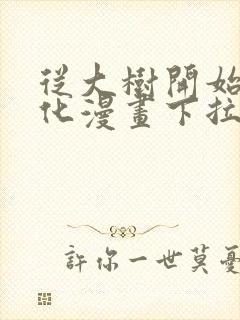 從大樹開始
化漫畫下拉
許你一世莫憂